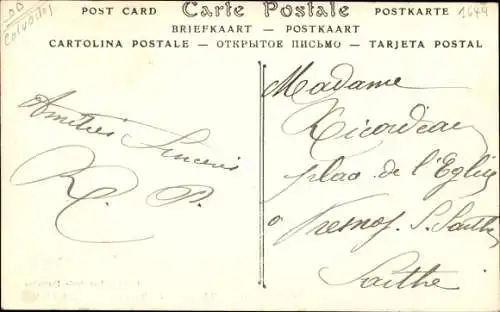 POST CARD Carte Postale POSTKARTE
BRIEFKAART — POSTKAART
CARTOLINA POSTALE — ОТКРЫТОЕ ПИСЬМО — TARJETA POSTAL
1644
Amitiés Sincères
R. P.
Madame
Ricordeau
place de l'Eglise
Fresnay S. Sarthe
Sarthe